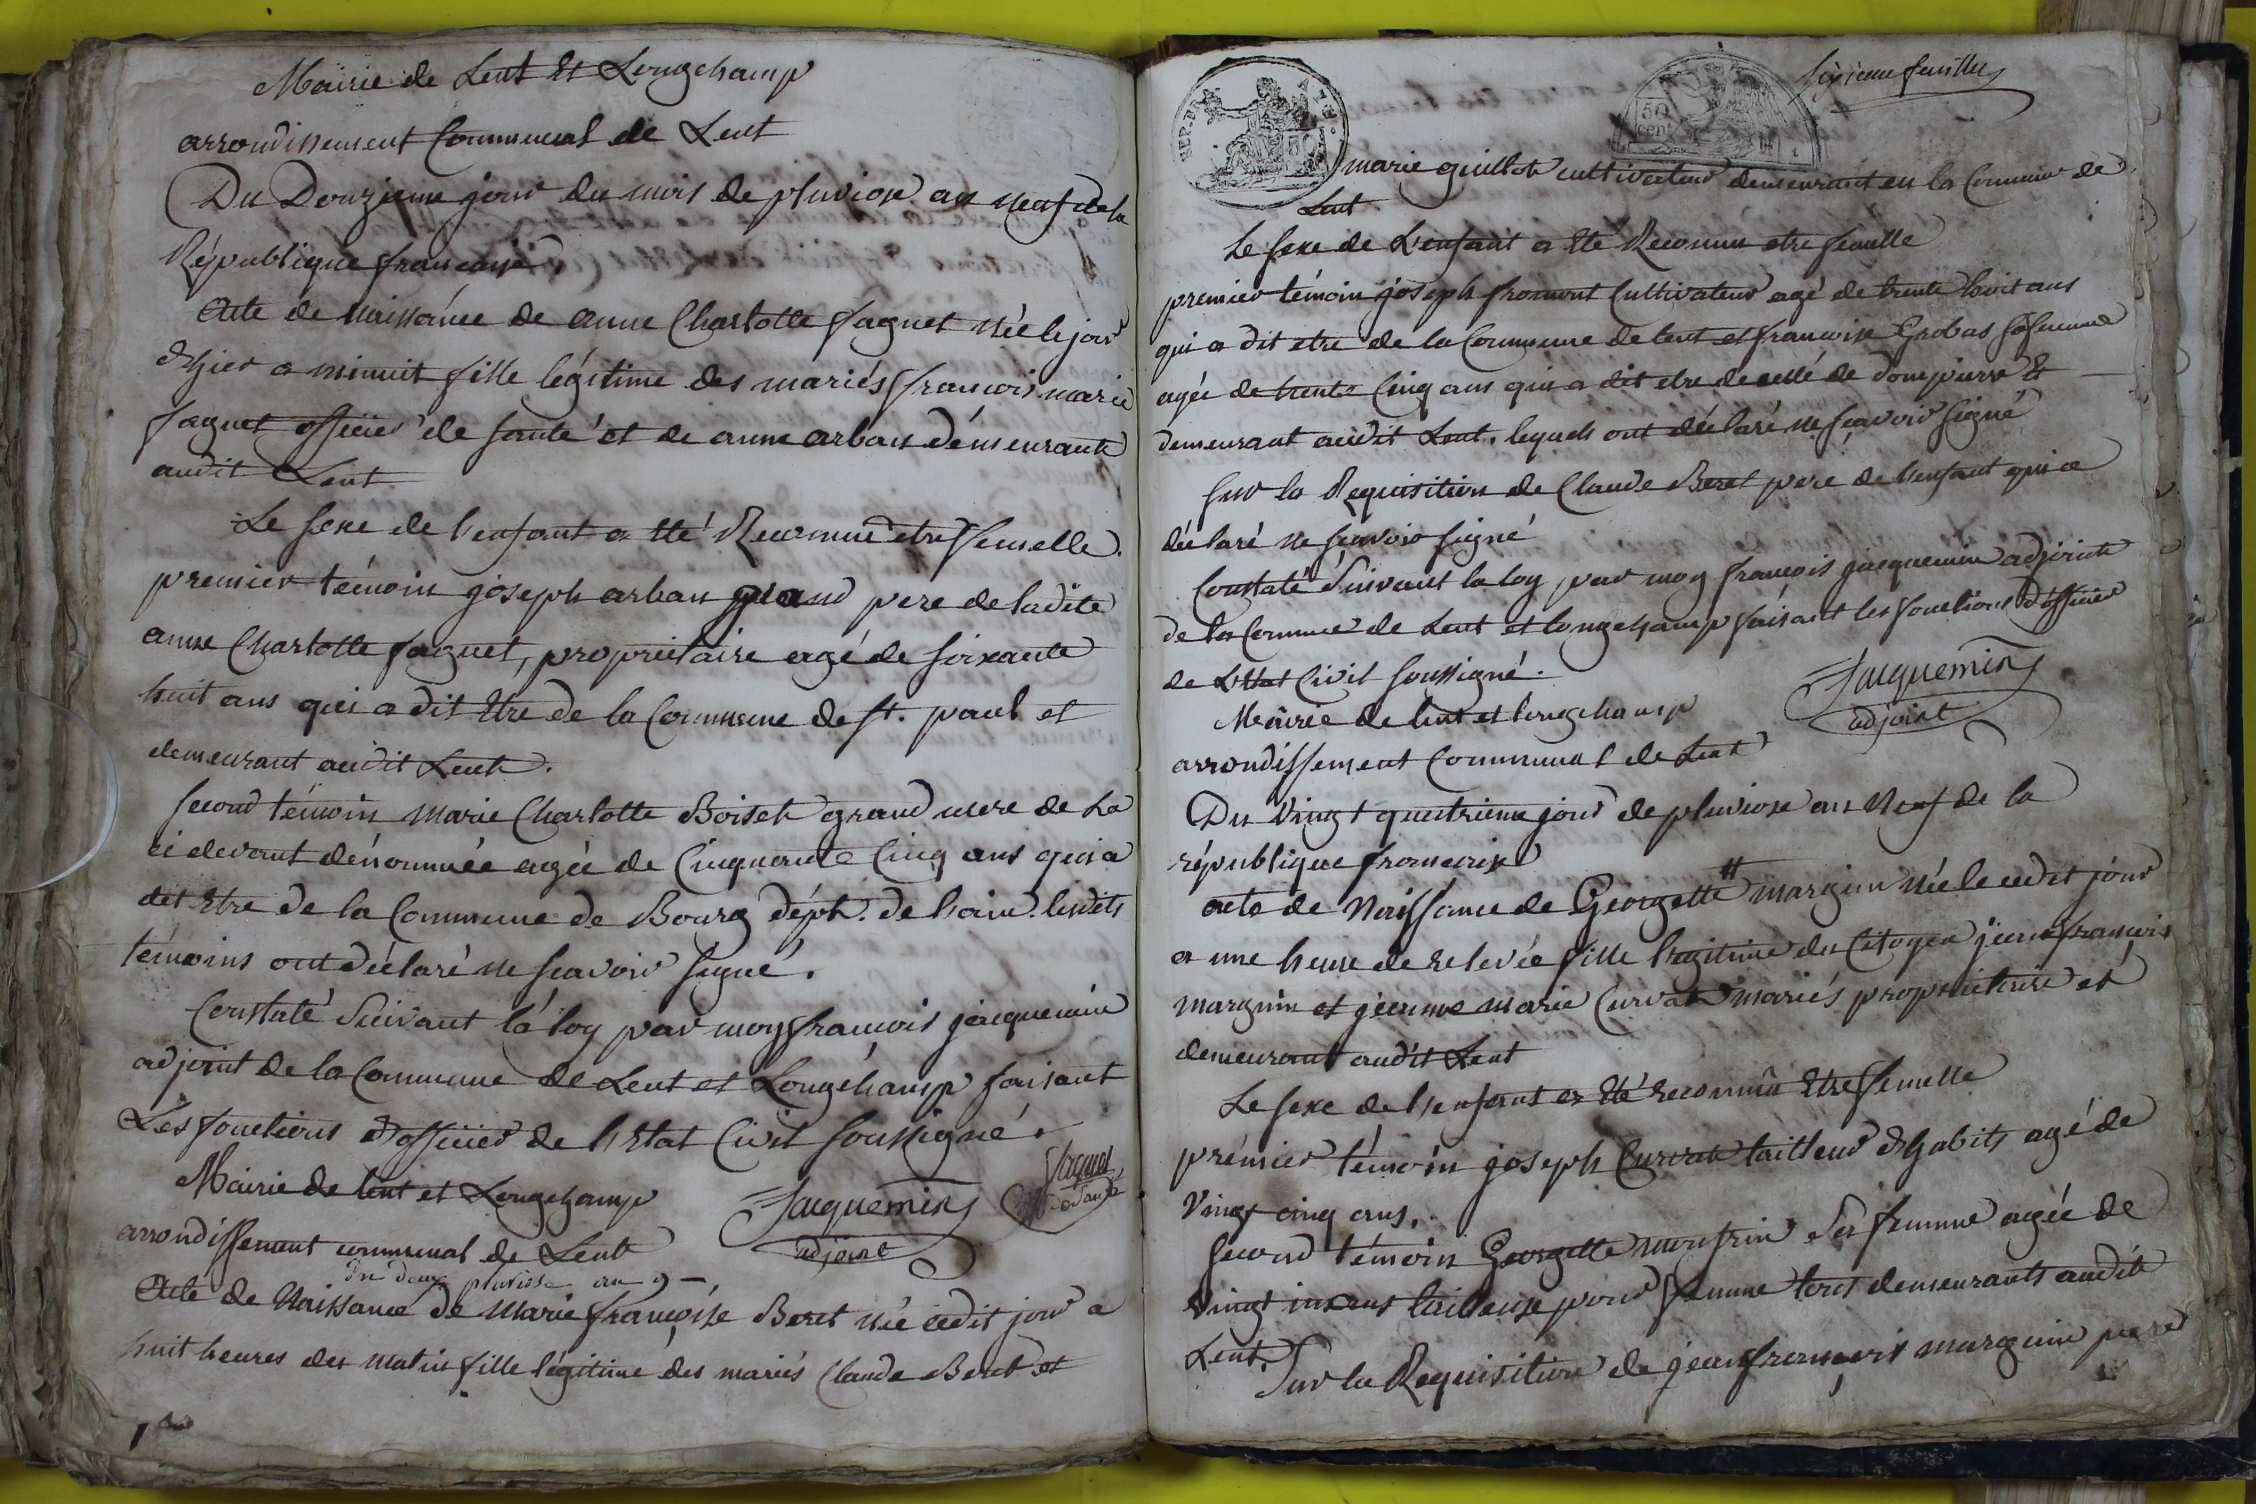 Mairie de Lent et Longchamp
arrondissement Communal de Lent
Du Douzieme jour du mois de pluviose an neuf de la
République francaise.
Acte de naissance de anne Charlotte faguet née le jour
d'hier a minuit fille légitime des mariés francois marie
faguet officier de santé et de anne arban démeurants
audit Lent
Le sexe de l'enfant a eté Reconnu etre femelle.
premier témoin joseph arban grand pere de ladite
anne Charlotte faguet, propriétaire agé de soixante
huit ans qui a dit Etre de la Commune de st. paul et
demeurant audit Lent.
second témoin marie Charlotte Boiset grand mere de La
ci devant dénommée agée de Cinquante Cinq ans qui a
dit Etre de la Commune de Bourg dépt. de l'ain. lesdits
témoins ont déclaré ne scavoir signé.
Constaté Suivant la loy par moy francois jacquemin
adjoint de la Commune de Lent et Longchamp faisant
Les fonctions d'officier de l'Etat Civil soussigné.
Mairie de lent et Longchamp
Jacquemin
adjoint
faguet
arrondissement communal de Lent
du douze pluviose an 9
Acte de Naissance de marie françoise Beret née cedit jour a
huit heures du matin fille légitime des mariés Claude Beret et
REP. FRA.
50
cent
sixieme feuillet
marie guillot cultivateur demeurant en la Commune de
Lent
Le sexe de L'enfant a Eté Reconnu etre femelle
premier témoin joseph fromont Cultivateur agé de trente huit ans
qui a dit etre de la Commune de lent et francoise Grobas sa femme
agée de trente Cinq ans qui a dit etre de cellé de dompierre Et
demeurant audit Lent. lequels ont déclaré ne scavoir signé
sur la Requisition de Claude Beret pere de l'enfant qui a
déclaré ne scavoir signé
Constaté Suivant la loy par moy françois jacquemin adjoint
de la Commune de Lent et longchamp faisant les fonctions d'officier
de L'Etat Civil soussigné.
Jacquemin
adjoint
Mairie de lent et longchamp
arrondissement Communal de Lent
Du Vingt quatrieme jour de pluviose an Neuf de la
république francaise
acte de Naissance de Georgette marguin née le cedit jour
a une heure de relevée fille légitime du Citoyen jean françois
marguin et jeanne marie Curvat mariés propriétaire et
demeurant audit Lent
Le sexe de l'enfant a Eté reconnu Etre femelle
prémier témoin joseph Curvat tailleur d'habits agé de
Vingt cinq ans.
second témoin Georgette sa femme agée de
Vingt ans tailleuse pour femme tous demeurants audit
Lent.
Sur la Requisition de jean francois marguin pere